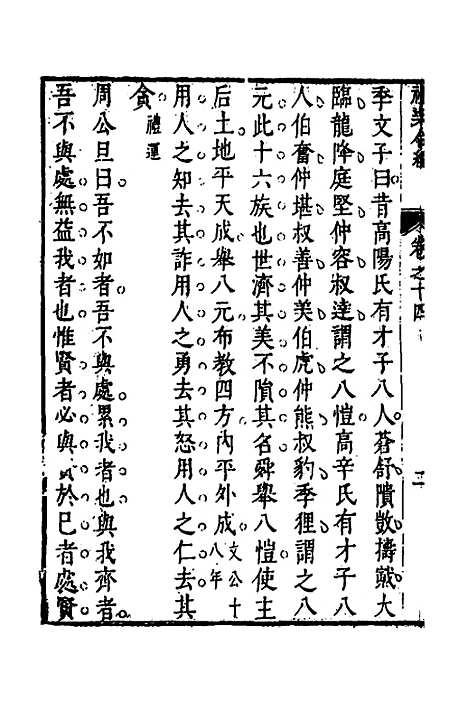 季文子曰昔高陽氏有才子八人蒼舒隤敳擣戭大
臨龍降庭堅仲容叔達謂之八愷高辛氏有才子八
人伯奮仲堪叔善仲美伯虎仲熊叔豹季狸謂之八
元此十六族也世濟其美不隕其名舜舉八愷使主
后土地平天成舉八元布教四方內平外成文公十八年
用人之知去其詐用人之勇去其怒用人之仁去其
貪禮運
周公旦曰吾不如者吾不與處累我者也與我齊者
吾不與處無益我者也惟賢者必與賢於己者處賢
卷之十四